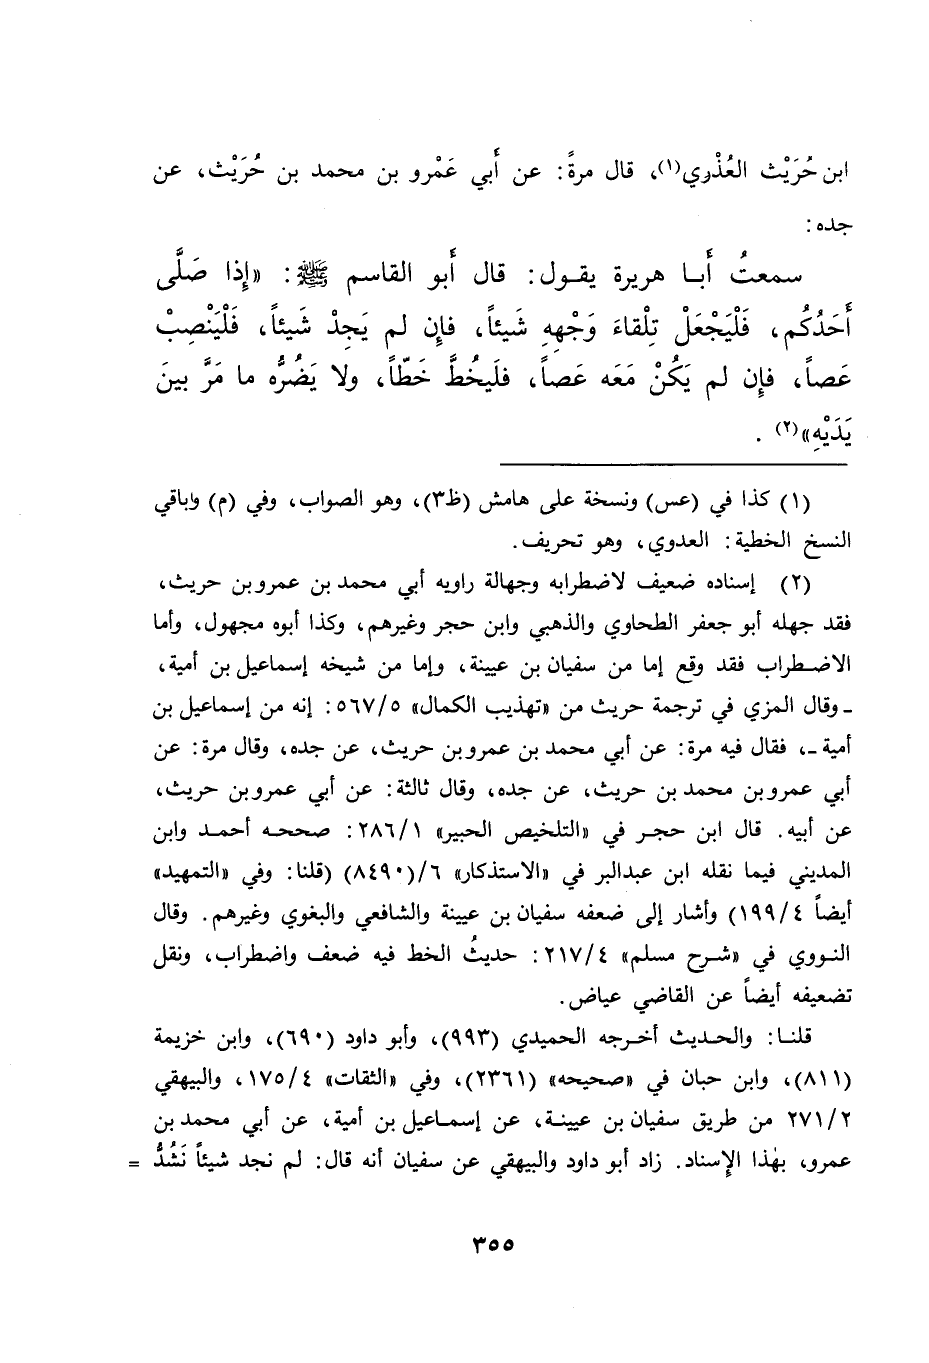 ابن حُرَيْث العُذْري(١)، قال مرةً: عن أَبي عَمْرو بن محمد بن حُرَيْث، عن
جده:
سمعتُ أَبا هريرة يقول: قال أَبو القاسم ﷺ: «إِذا صَلَّى
أَحَدُكُم، فَلْيَجْعَلْ تِلْقاءَ وَجْهِهِ شَيئاً، فإِن لم يَجِدْ شَيئاً، فَلْيَنْصِبْ
عَصاً، فإِن لم يَكُنْ مَعَه عَصاً، فلَيخُطَّ خَطّاً، ولا يَضُرُّه ما مَرَّ بينَ
يَدَيْهِ»(٢).
(١) كذا في (عس) ونسخة على هامش (ظ٣)، وهو الصواب، وفي (م) وباقي
النسخ الخطية: العدوي، وهو تحريف.
(٢) إسناده ضعيف لاضطرابه وجهالة راويه أبي محمد بن عمرو بن حريث،
فقد جهله أبو جعفر الطحاوي والذهبي وابن حجر وغيرهم، وكذا أبوه مجهول، وأما
الاضطراب فقد وقع إما من سفيان بن عيينة، وإما من شيخه إسماعيل بن أمية،
ـ وقال المزي في ترجمة حريث من «تهذيب الكمال» ٥٦٧/٥: إنه من إسماعيل بن
أمية ـ، فقال فيه مرة: عن أبي محمد بن عمرو بن حريث، عن جده، وقال مرة: عن
أبي عمرو بن محمد بن حريث، عن جده، وقال ثالثة: عن أبي عمرو بن حريث،
عن أبيه. قال ابن حجر في «التلخيص الحبير» ٢٨٦/١: صححه أحمد وابن
المديني فيما نقله ابن عبدالبر في «الاستذكار» ٦/(٨٤٩٠) (قلنا: وفي «التمهيد»
أيضاً ١٩٩/٤) وأشار إلى ضعفه سفيان بن عيينة والشافعي والبغوي وغيرهم. وقال
النووي في «شرح مسلم» ٢١٧/٤: حديثُ الخط فيه ضعف واضطراب، ونقل
تضعيفه أيضاً عن القاضي عياض.
قلنا: والحديث أخرجه الحميدي (٩٩٣)، وأبو داود (٦٩٠)، وابن خزيمة
(٨١١)، وابن حبان في «صحيحه» (٢٣٦١)، وفي «الثقات» ١٧٥/٤، والبيهقي
٢٧١/٢ من طريق سفيان بن عيينة، عن إسماعيل بن أمية، عن أبي محمد بن
عمرو، بهٰذا الإِسناد. زاد أبو داود والبيهقي عن سفيان أنه قال: لم نجد شيئاً نَشُدُّ =
٣٥٥